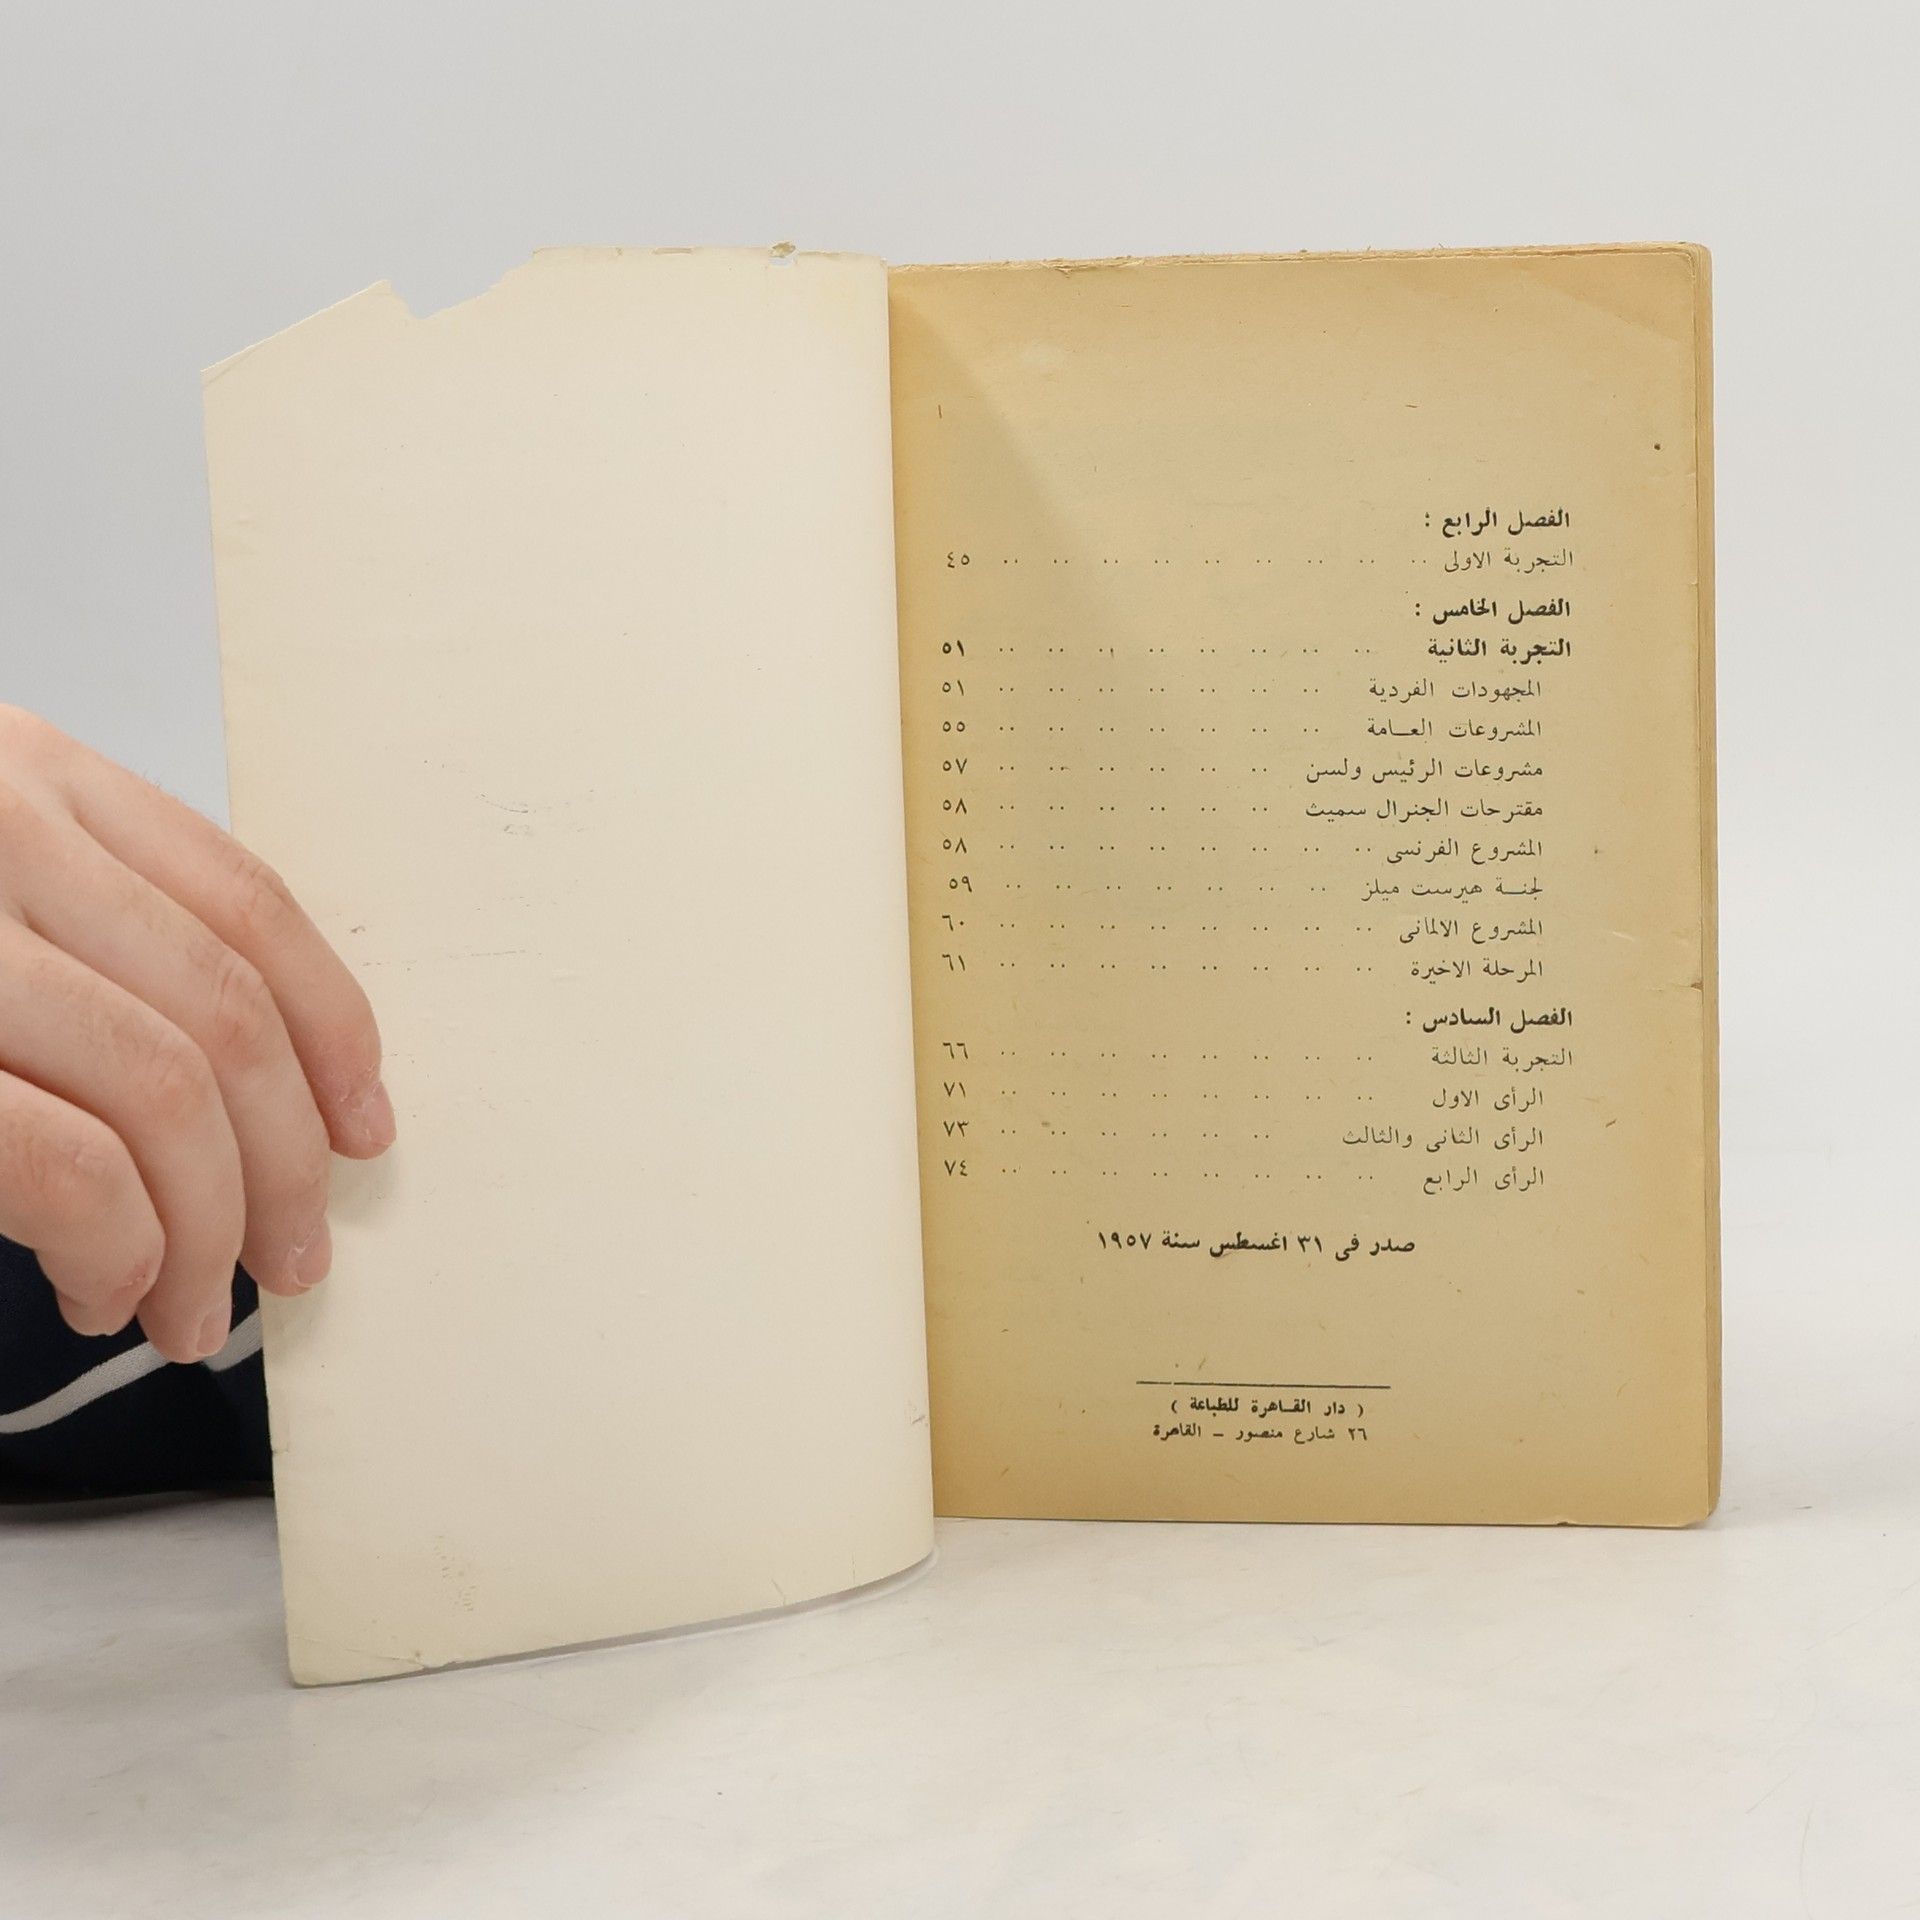 الفصل الرابع :
التجربة الاولى .. .. .. .. .. .. .. .. .. ٤٥
الفصل الخامس :
التجربة الثانية .. .. .. .. .. .. .. .. ٥١
المجهودات الفردية .. .. .. .. .. .. .. ٥١
المشروعات العـامة .. .. .. .. .. .. .. ٥٥
مشروعات الرئيس ولسن .. .. .. .. .. .. ٥٧
مقترحات الجنرال سميث .. .. .. .. .. .. ٥٨
المشروع الفرنسى .. .. .. .. .. .. .. .. ٥٨
لجنـة هيرست ميلز .. .. .. .. .. .. .. ٥٩
المشروع الالمانى .. .. .. .. .. .. .. .. ٦٠
المرحلة الاخيرة .. .. .. .. .. .. .. .. ٦١
الفصل السادس :
التجربة الثالثة .. .. .. .. .. .. .. .. ٦٦
الرأى الاول .. .. .. .. .. .. .. .. ٧١
الرأى الثانى والثالث .. .. .. .. .. .. ٧٣
الرأى الرابع .. .. .. .. .. .. .. .. ٧٤
صدر فى ٣١ اغسطس سنة ١٩٥٧
( دار القـاهرة للطباعة )
٢٦ شارع منصور – القاهرة